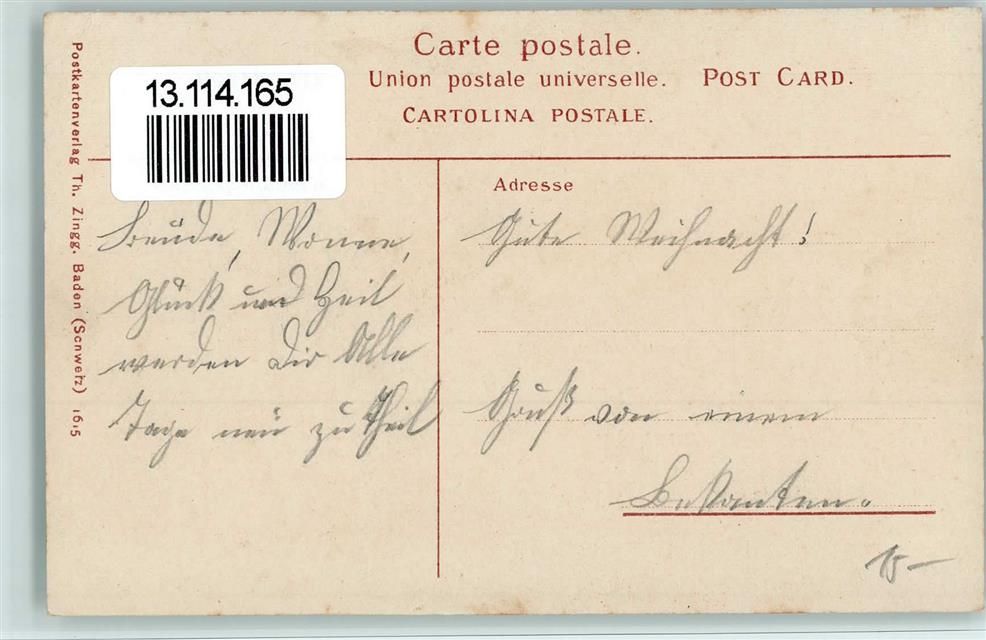 Carte postale.
Union postale universelle. POST CARD.
CARTOLINA POSTALE.
13.114.165
Postkartenverlag Th. Zingg. Baden (Schweiz) 1615
Adresse
Freude, Wonne,
Glück und Heil
werden Dir Alle
Tage neu zu Theil
Gute Weihnacht!
Gruß von einem
Bekanten.
15-